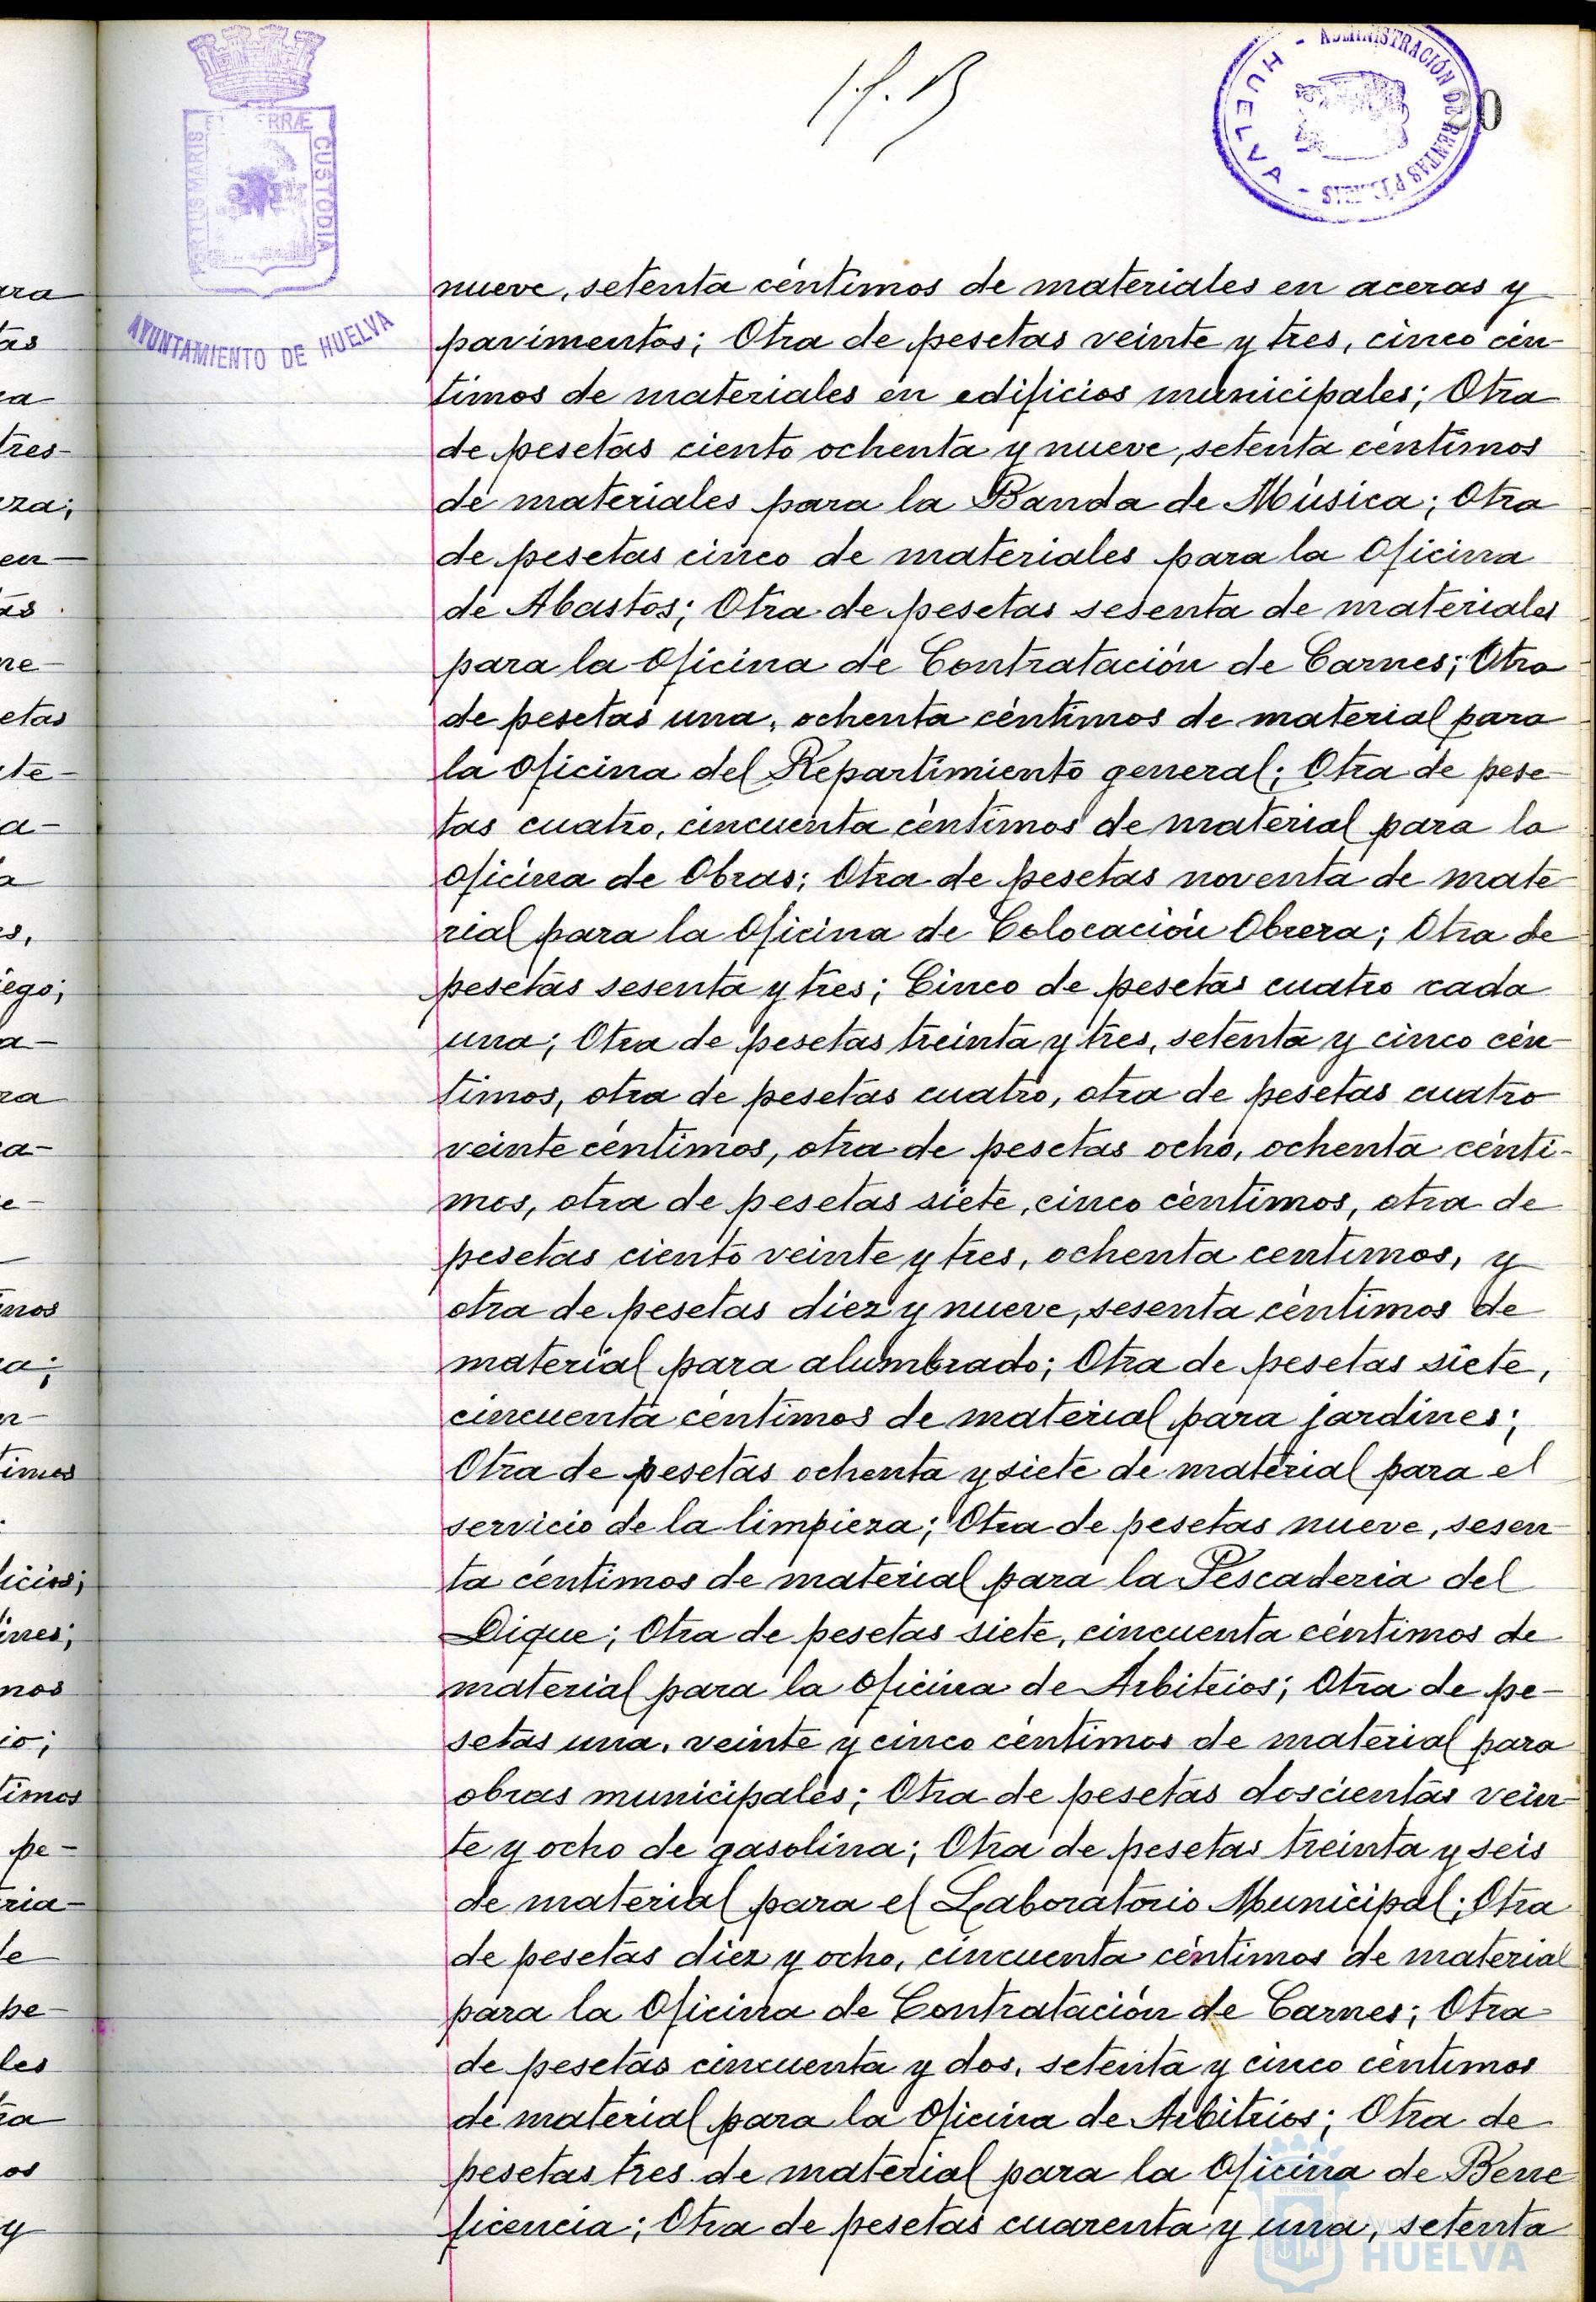 PORTUS MARIS ET TERRÆ CUSTODIA
AYUNTAMIENTO DE HUELVA
ADMINISTRACIÓN DE RENTAS PÚBLICAS
- HUELVA -
nueve, setenta céntimos de materiales en aceras y
pavimentos; Otra de pesetas veinte y tres, cinco cén-
timos de materiales en edificios municipales; Otra
de pesetas ciento ochenta y nueve, setenta céntimos
de materiales para la Banda de Música; Otra
de pesetas cinco de materiales para la Oficina
de Abastos; Otra de pesetas sesenta de materiales
para la Oficina de Contratación de Carnes; Otra
de pesetas una, ochenta céntimos de material para
la Oficina del Repartimiento general; Otra de pese-
tas cuatro, cincuenta céntimos de material para la
Oficina de Obras; Otra de pesetas noventa de mate-
rial para la Oficina de Colocación Obrera; Otra de
pesetas sesenta y tres; Cinco de pesetas cuatro cada
una; Otra de pesetas treinta y tres, setenta y cinco cén-
timos, otra de pesetas cuatro, otra de pesetas cuatro
veinte céntimos, otra de pesetas ocho, ochenta cénti-
mos, otra de pesetas siete, cinco céntimos, otra de
pesetas ciento veinte y tres, ochenta centimos, y
otra de pesetas diez y nueve, sesenta céntimos de
material para alumbrado; Otra de pesetas siete,
cincuenta céntimos de material para jardines;
Otra de pesetas ochenta y siete de material para el
servicio de la limpieza; Otra de pesetas nueve, sesen-
ta céntimos de material para la Pescaderia del
Dique; Otra de pesetas siete, cincuenta céntimos de
material para la Oficina de Arbitrios; Otra de pe-
setas una, veinte y cinco céntimos de material para
obras municipales; Otra de pesetas doscientas vein-
te y ocho de gasolina; Otra de pesetas treinta y seis
de material para el Laboratorio Municipal; Otra
de pesetas diez y ocho, cincuenta céntimos de material
para la Oficina de Contratación de Carnes; Otra
de pesetas cincuenta y dos, setenta y cinco céntimos
de material para la Oficina de Arbitrios; Otra de
pesetas tres de material para la Oficina de Bene
ficencia; Otra de pesetas cuarenta y una, setenta
HUELVA